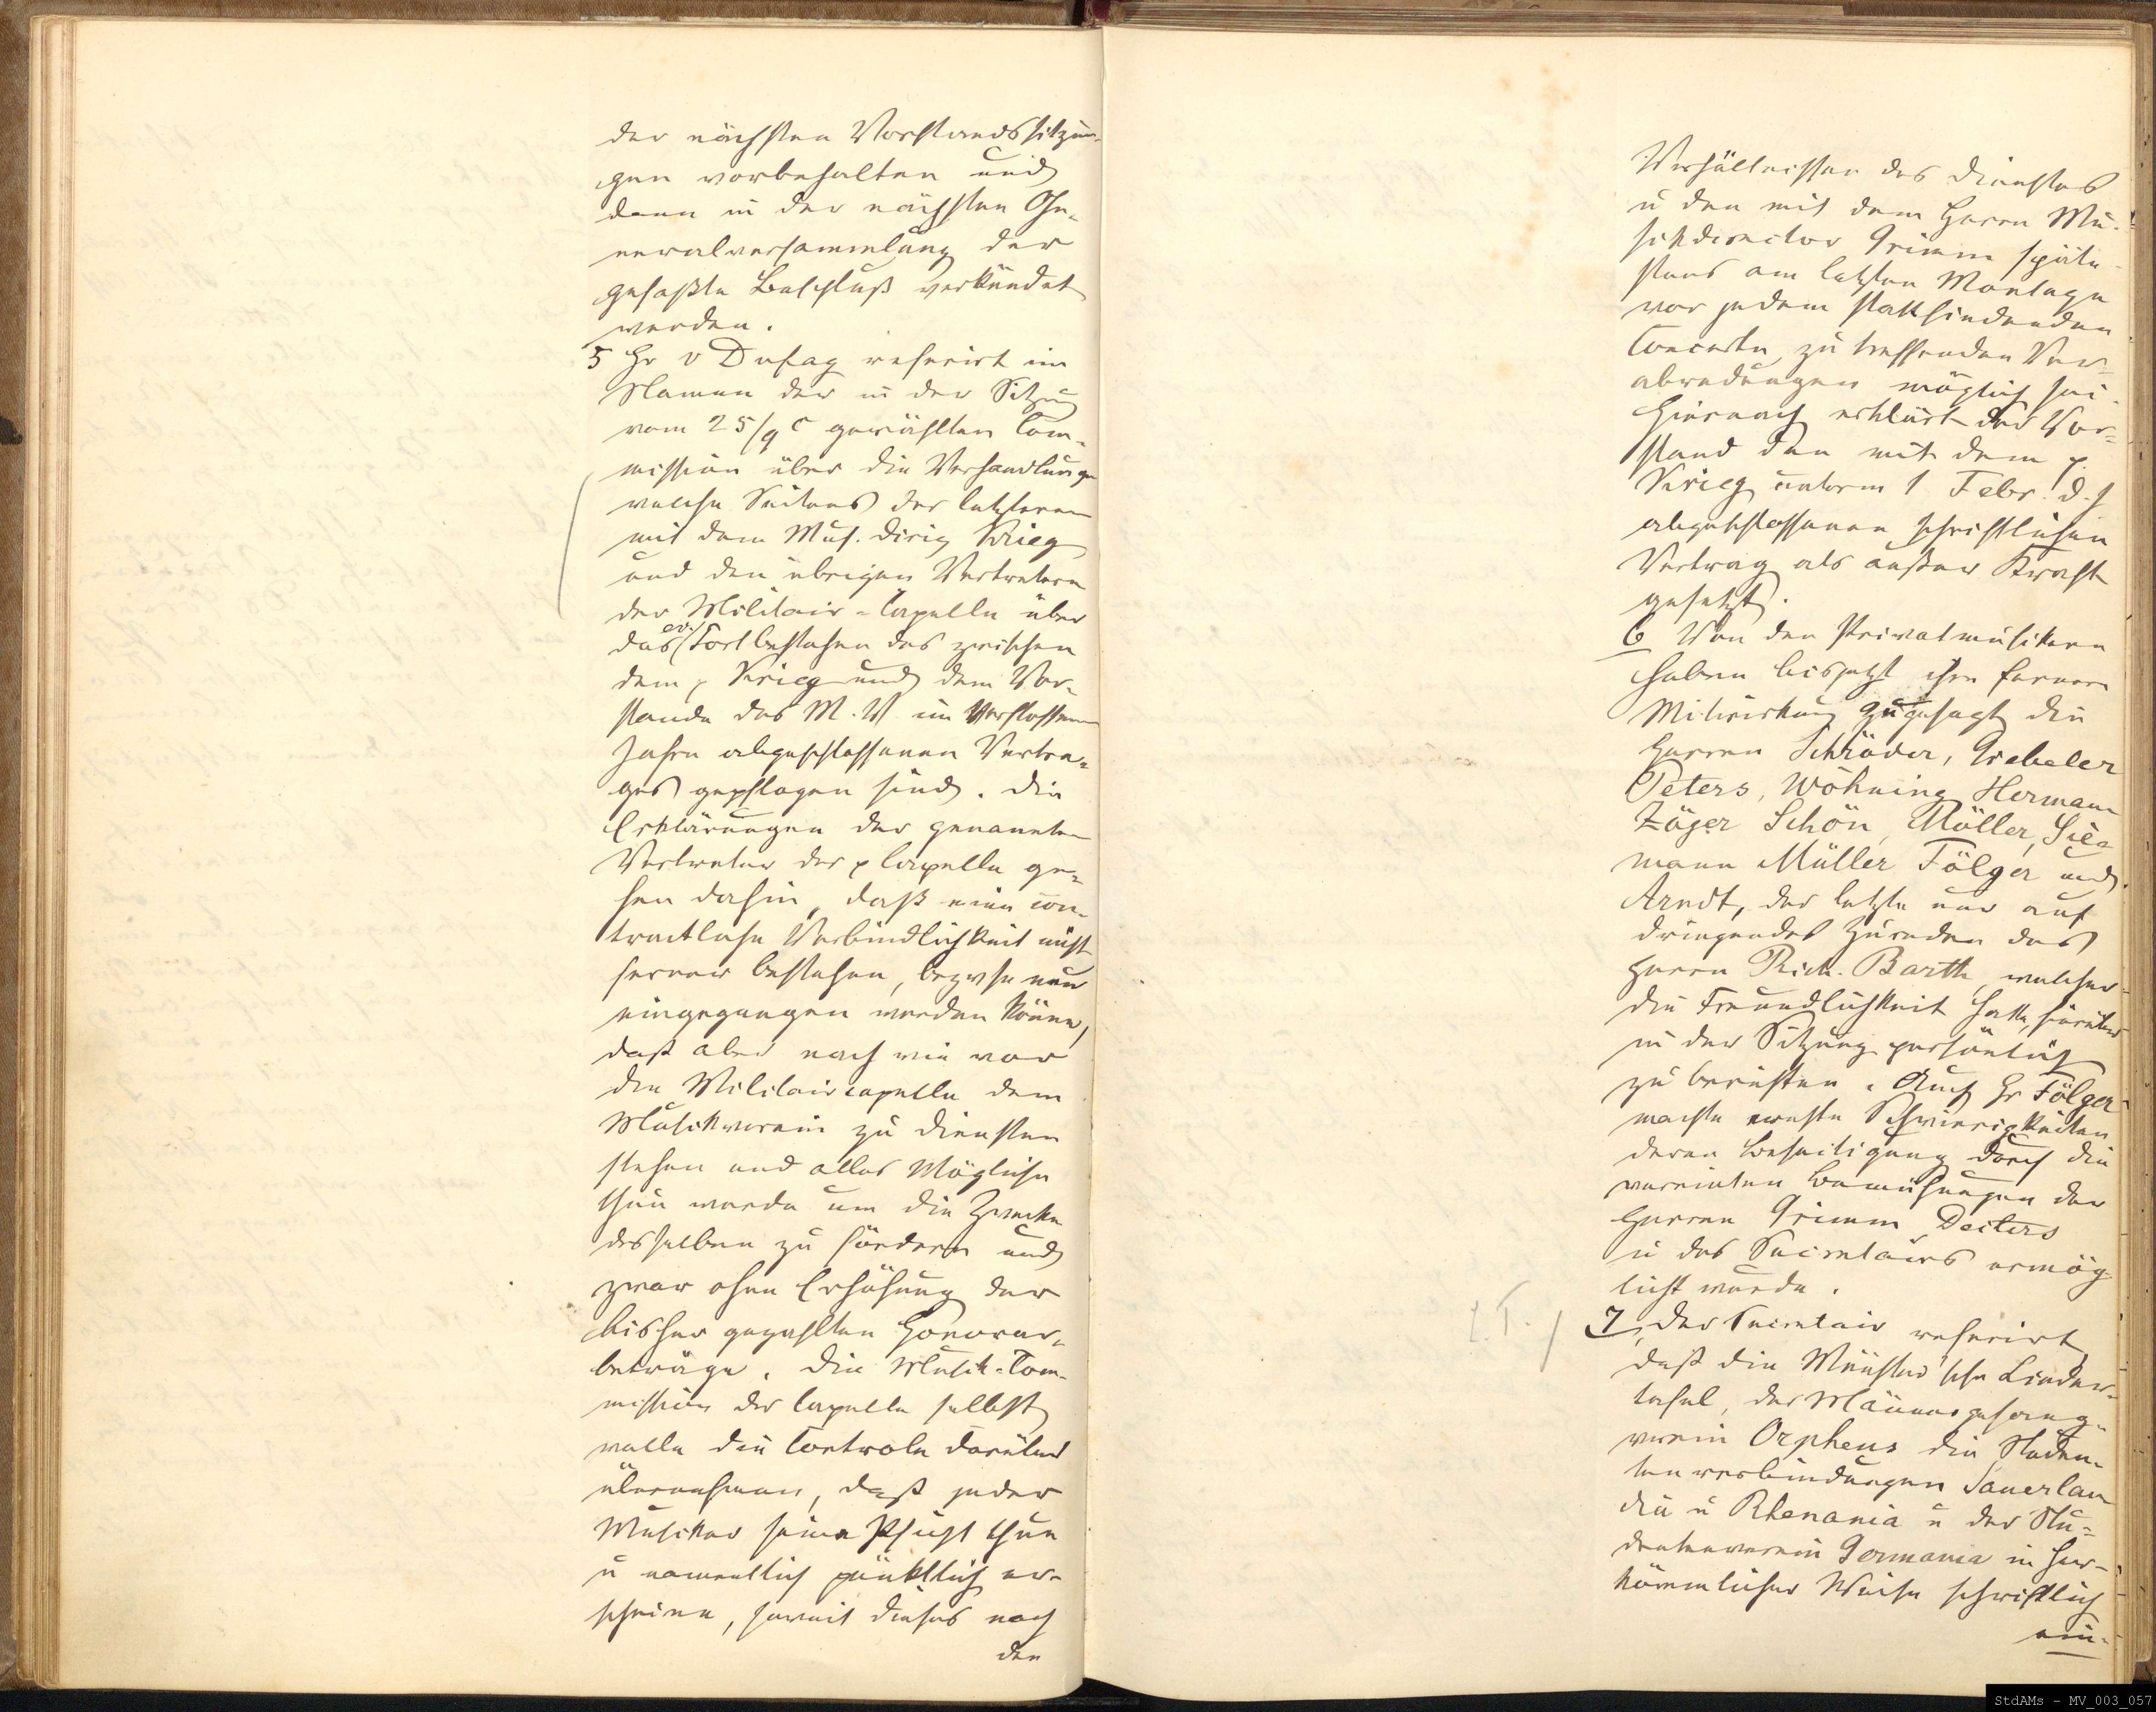 der nächsten Vorstandssitzun-
gen vorbehalten und
dann in der nächsten Ge-
neralversammlung der
gefaßte Beschluß verkündet
werden.
5 Hr v Dufay referirt im
Namen der in der Sitzung
vom 25/9 c gewählten Com-
mission über die Verhandlungen
welche Seitens der letzteren
mit dem Mus. Dirig Krieg
und den übrigen Vertretern
der Militair-Capelle über
das ev. Fortbestehen des zwischen
dem p Krieg und dem Vor-
stande des M. V. im verflossenen
Jahre abgeschlossenen Vertra-
ges gepflogen sind. Die
Erklärungen der genannten
Vertreter der p Capelle ge-
hen dahin, daß eine con-
tractliche Verbindlichkeit nicht
ferner bestehen, bezwse neu
eingegangen werden könne,
daß aber nach wie vor
die Militaircapelle dem
Musikverein zu Diensten
stehen und alles Mögliche
thun werde um die Zwecke
desselben zu fördern und
zwar ohne Erhöhung der
bisher gezahlten Honorar-
beträge. Die Musik-Com-
mission der Capelle selbst
wolle die Controle darüber
übernehmen, daß jeder
Musiker seine Pflicht thue
u namentlich pünktlich er-
scheine, soweit dieses nach
den
Verhältnissen des Dienstes
u den mit dem Herrn Mu-
sikdirector Grimm späte-
stens am letzten Montage
vor jedem stattfindenden
Concerte, zu treffenden Ver-
abredungen möglich sei.
Hiernach erklärt der Vor-
stand den mit dem p
Krieg unterm 1 Febr. d. J
abgeschlossenen schriftlichen
Vertrag als außer Kraft
gesetzt.
6 Von den Privatmusikern
haben bisjetzt ihre fernere
Mitwirkung zugesagt die
Herren Schröder, Grebeler
Peters, Wöhning Hermann
Zäger Schön, Möller, Sie-
mann Müller Fölger und
Arndt, der letzte nur auf
dringendes Zureden des
Herrn Rich. Barth, welcher
die Freundlichkeit hatte, hierüber
in der Sitzung persönlich
zu berichten. Auch Hr Fölger
machte ernste Schwierigkeiten
deren Beseitigung durch die
vereinten Bemühungen der
Herren Grimm, Deiters
u des Secretairs ermög-
licht wurde.
L. T. / 7, Der Secretair referirt,
daß die Münster'sche Lieder-
tafel, der Männergesang-
verein Orpheus die Studen-
tenverbindungen Sauerlan
dia u Rhenania u der Stu-
dentenverein Germania in her-
kömmlicher Weise schriftlich
ein-
StdAMs - MV_003_057